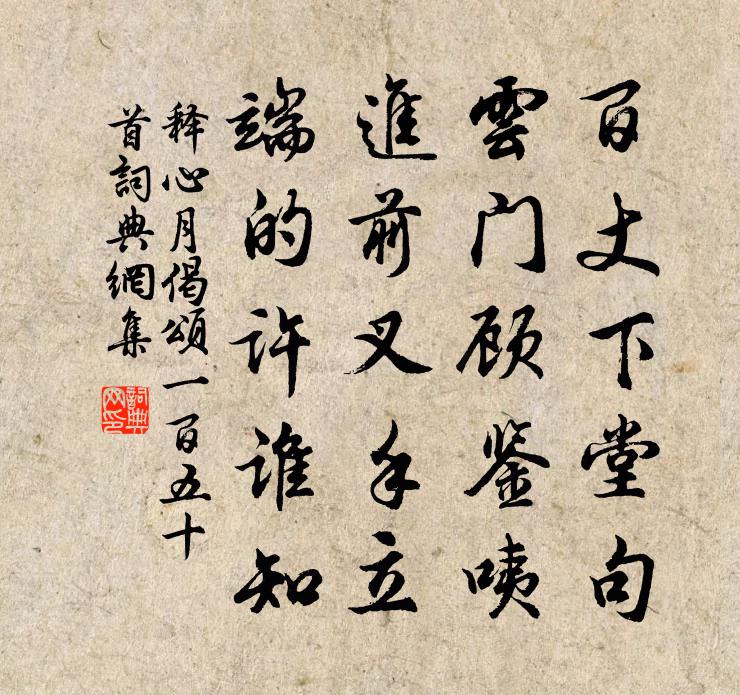 百丈下堂句
雲门顾鉴咦
進前叉手立
端的许谁知
释心月偈頌一百五十
首詞典網集
詞典
网印